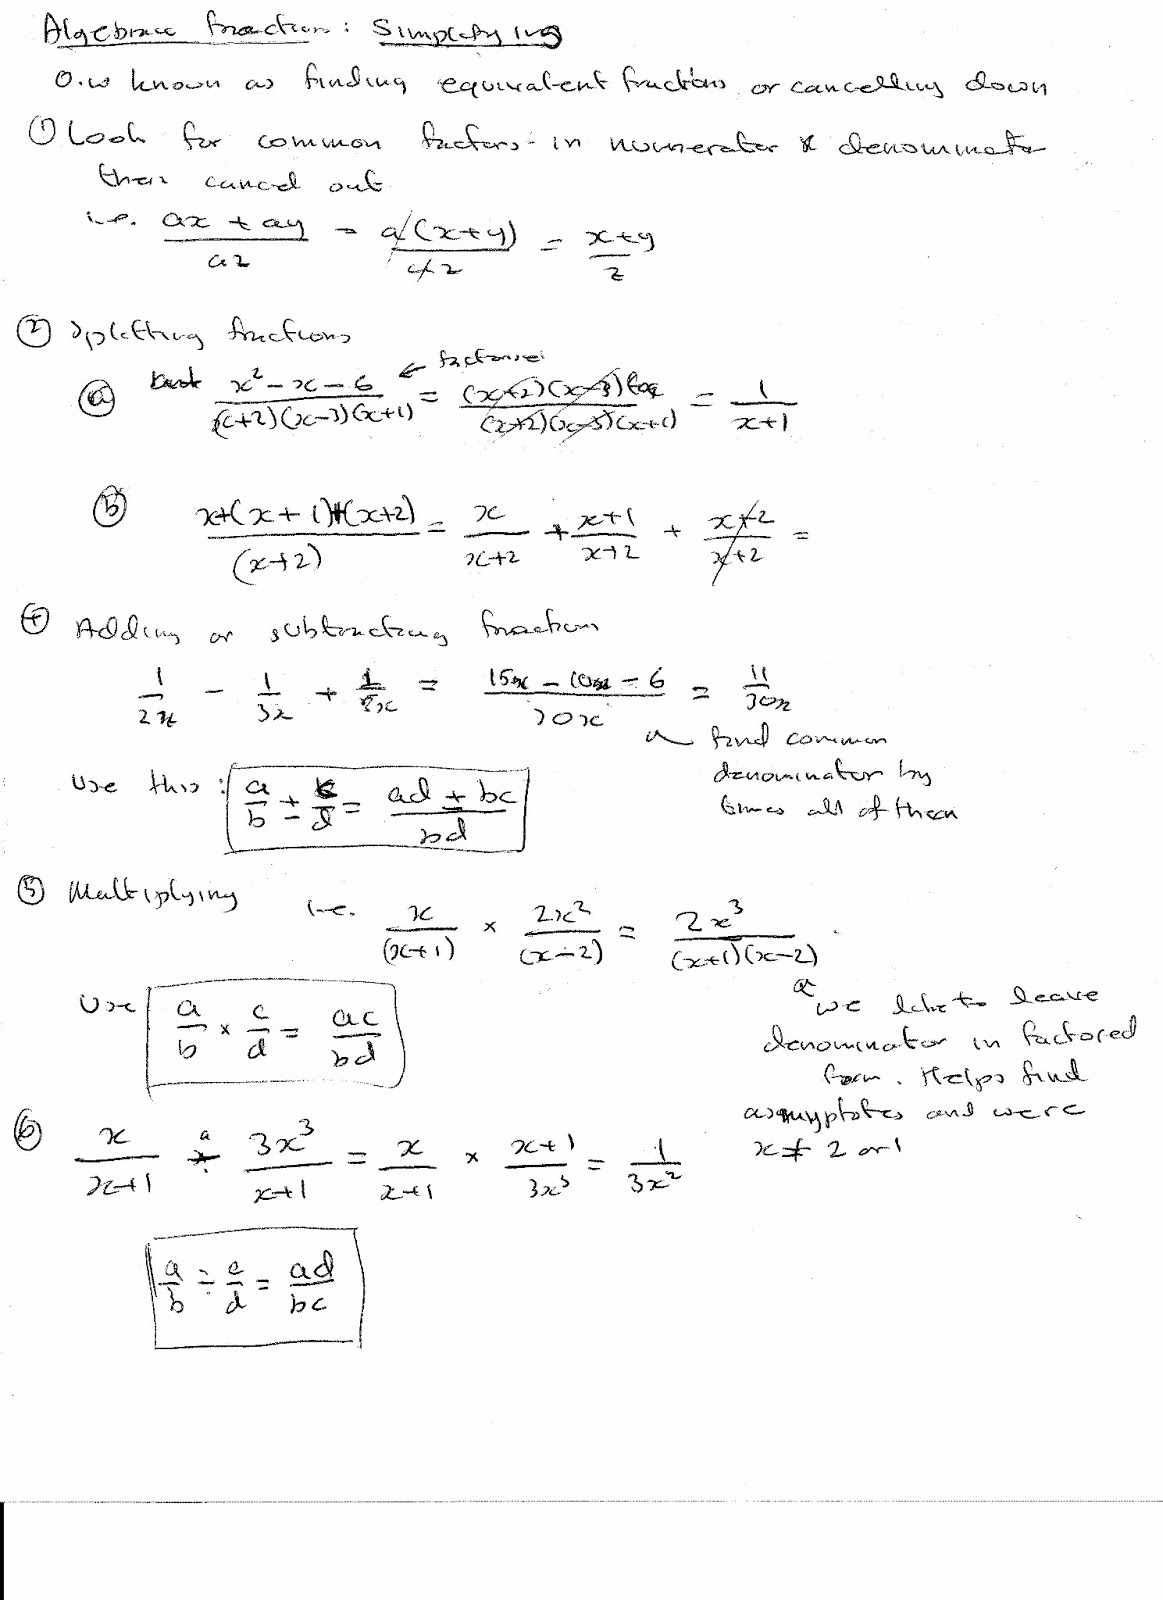 Algebraic fractions: Simplifying
O.w known as finding equivalent fractions or cancelling down
① Look for common factors in numerator & denominator
then cancel out
i.e. (ax + ay)/az = a(x+y)/az = (x+y)/z
② Splitting fractions
← factorise
ⓐ (x² - x - 6)/((x+2)(x-3)(x+1)) = ((x+2)(x-3))/((x+2)(x-3)(x+1)) = 1/(x+1)
ⓑ (x+(x+1)+(x+2))/(x+2) = x/(x+2) + (x+1)/(x+2) + (x+2)/(x+2) =
④ Adding or subtracting fractions
1/2x - 1/3x + 1/5x = (15 - 10 - 6)/30x = 11/30x
find common
denominator by
times all of them
Use this: a/b ± c/d = (ad ± bc)/bd
⑤ Multiplying i.e. x/(x+1) × 2x²/(x-2) = 2x³/((x+1)(x-2))
Use a/b × c/d = ac/bd
we like to leave
denominator in factored
form. Helps find
asmyptotes and were
x ≠ 2 or 1
⑥ x/(x+1) ÷ 3x³/(x+1) = x/(x+1) × (x+1)/3x³ = 1/3x²
a/b ÷ c/d = ad/bc